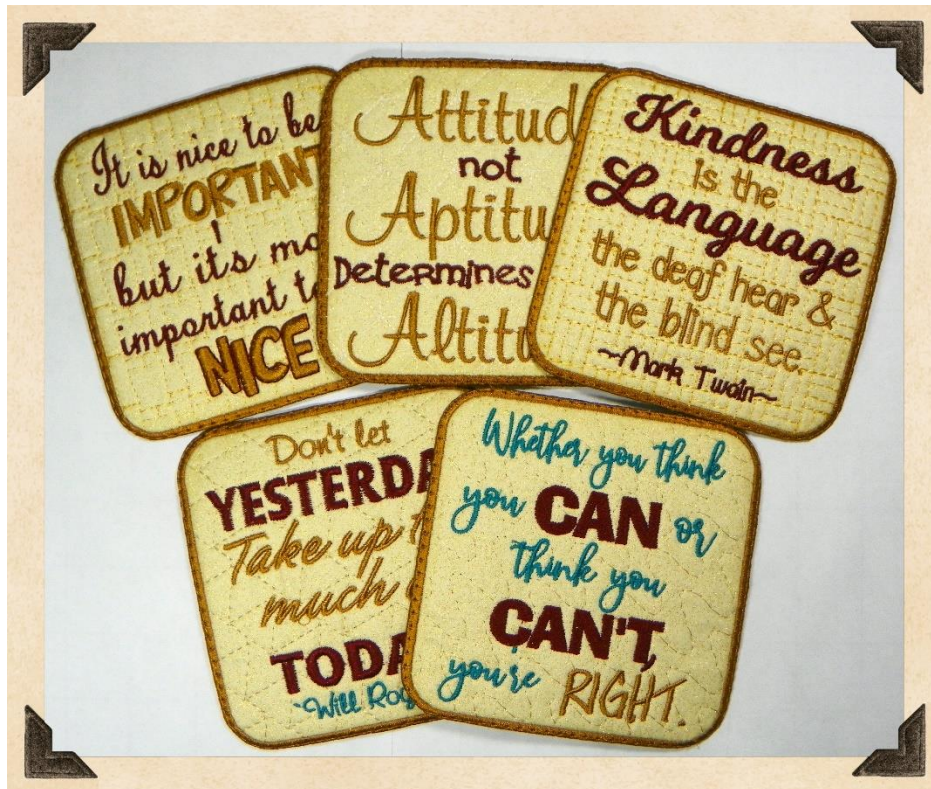 It is nice to be
IMPORTANT
but it's mo
important t
NICE
Attitud
not
Aptitu
Determines
Altitu
Kindness
is the
Language
the deaf hear &
the blind see.
~Mark Twain~
Don't let
YESTERDA
Take up t
much
TODA
~Will Rog
Whether you think
you CAN or
think you
CAN'T,
you're RIGHT.